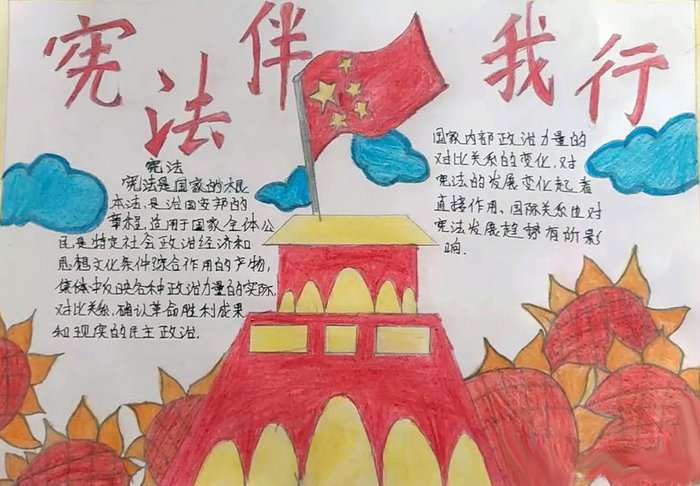 宪法伴我行
宪法
宪法是国家的根
本法,是治国安邦的
章程,适用于国家全体公
民,是特定社会政治经济和
思想文化条件综合作用的产物,
集体中反映各种政治力量的实际
对比关系,确认革命胜利成果
和现实的民主政治.
国家内部政治力量的
对比关系的变化,对
宪法的发展变化起着
直接作用、国际关系也对
宪法发展趋势有所影
响.